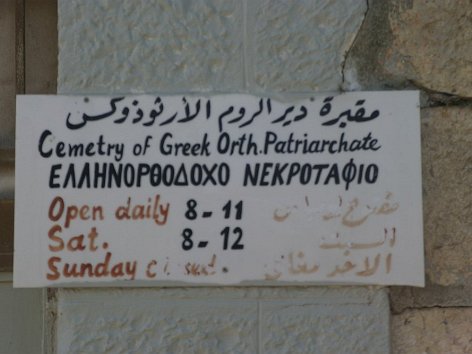 مقبرة دير الروم الأرثوذوكس
Cemetry of Greek Orth. Patriarchate
ΕΛΛΗΝΟΡΘΟΔΟΧΟ ΝΕΚΡΟΤΑΦΙΟ
Open daily 8-11
Sat. 8-12 السبت
Sunday الاحد مغلق